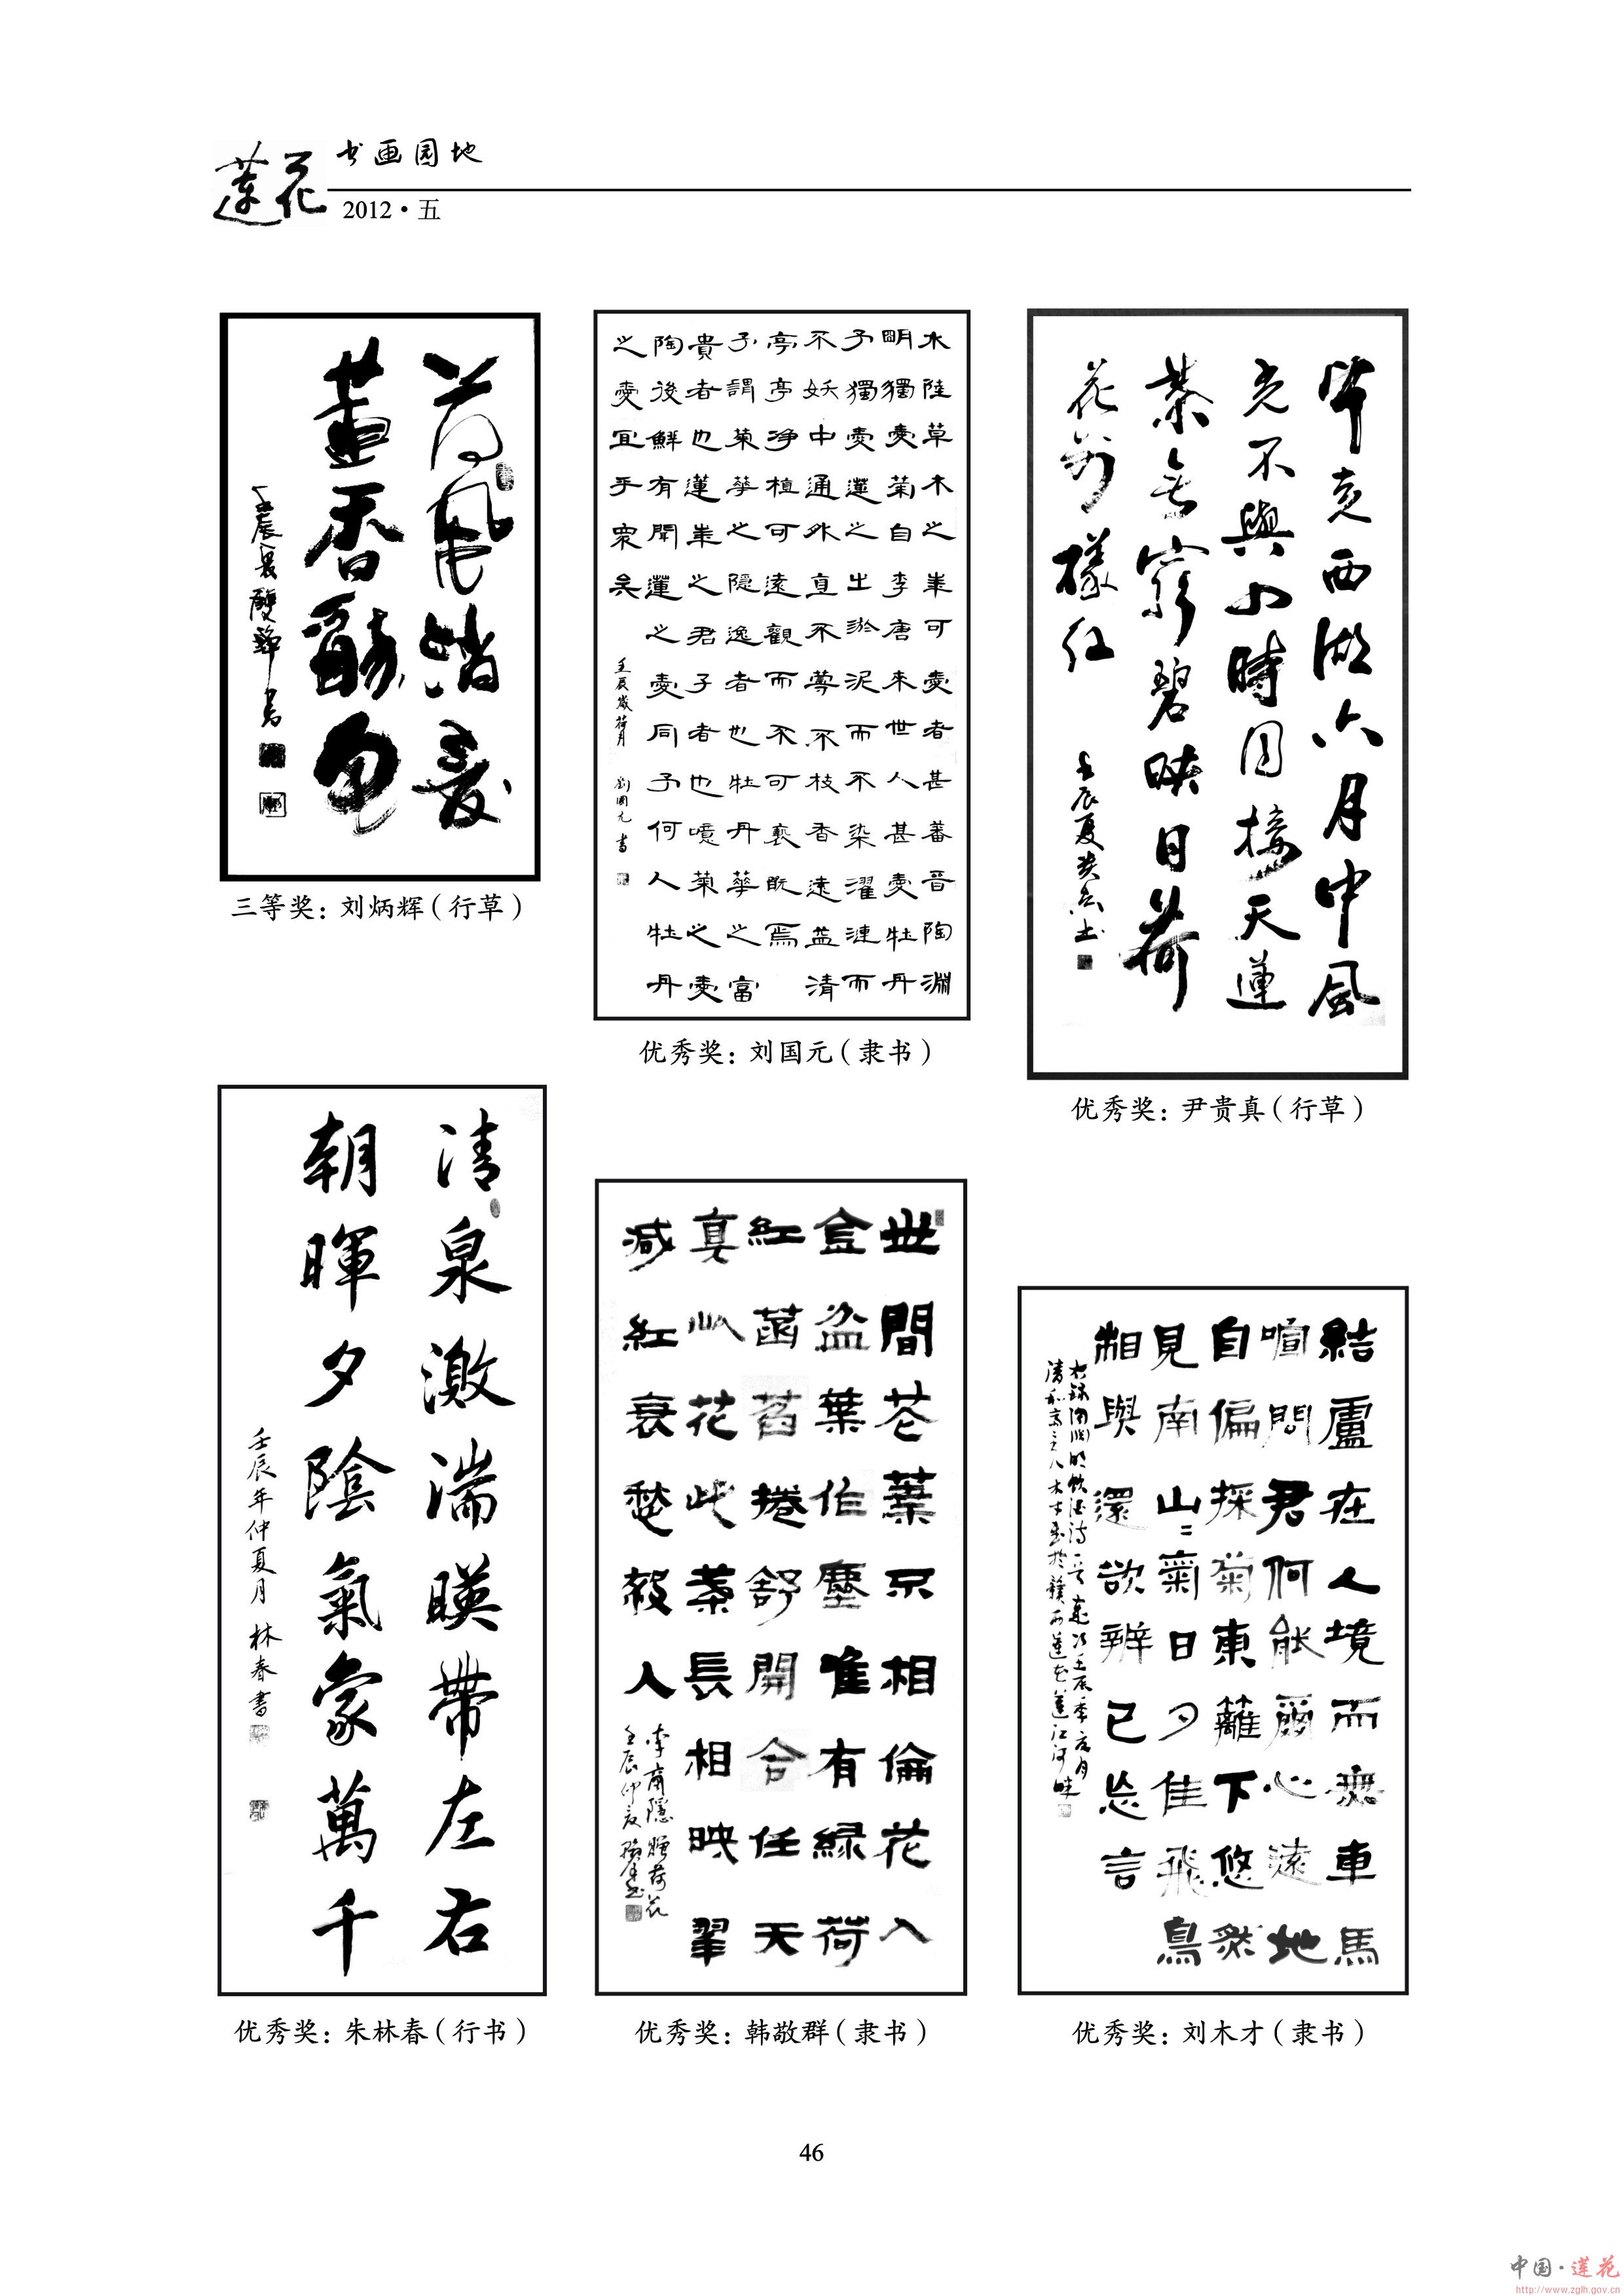 莲花
书画园地
2012·五
壬辰
三等奖：刘炳辉（行草）
水陸草木之華可愛者甚蕃晉陶淵
明獨愛菊自李唐來世人甚愛牡丹
予獨愛蓮之出淤泥而不染濯漣而
不妖中通外直不蔓不枝香遠益清
亭亭净植可遠觀而不可褻既焉
予謂菊華之隱逸者也牡丹華之富
貴者也蓮華之君子者也噫菊之愛
陶後鮮有聞蓮之愛同予何人牡丹
之愛宜乎衆矣
壬辰歲荷月 劉國元書
优秀奖：刘国元（隶书）
畢竟西湖六月中風
光不與四時同接天蓮
葉無窮碧映日荷
花别樣红
壬辰夏
优秀奖：尹贵真（行草）
清泉激湍暎帶左右
朝暉夕陰氣象萬千
壬辰年仲夏月 林春書
优秀奖：朱林春（行书）
世間花葉不相倫花入
金盆葉作塵唯有緑荷
紅菡萏捲舒開合任天
真此花此葉長相映翠
减紅衰愁殺人
李商隱贈荷花
壬辰仲夏
优秀奖：韩敬群（隶书）
結廬在人境而無車馬
喧問君何能爾心遠地
自偏採菊東籬下悠然
見南山山氣日夕佳飛鳥
相與還欲辨已忘言
优秀奖：刘木才（隶书）
46
中国·莲花
http://www.zglh.gov.cn